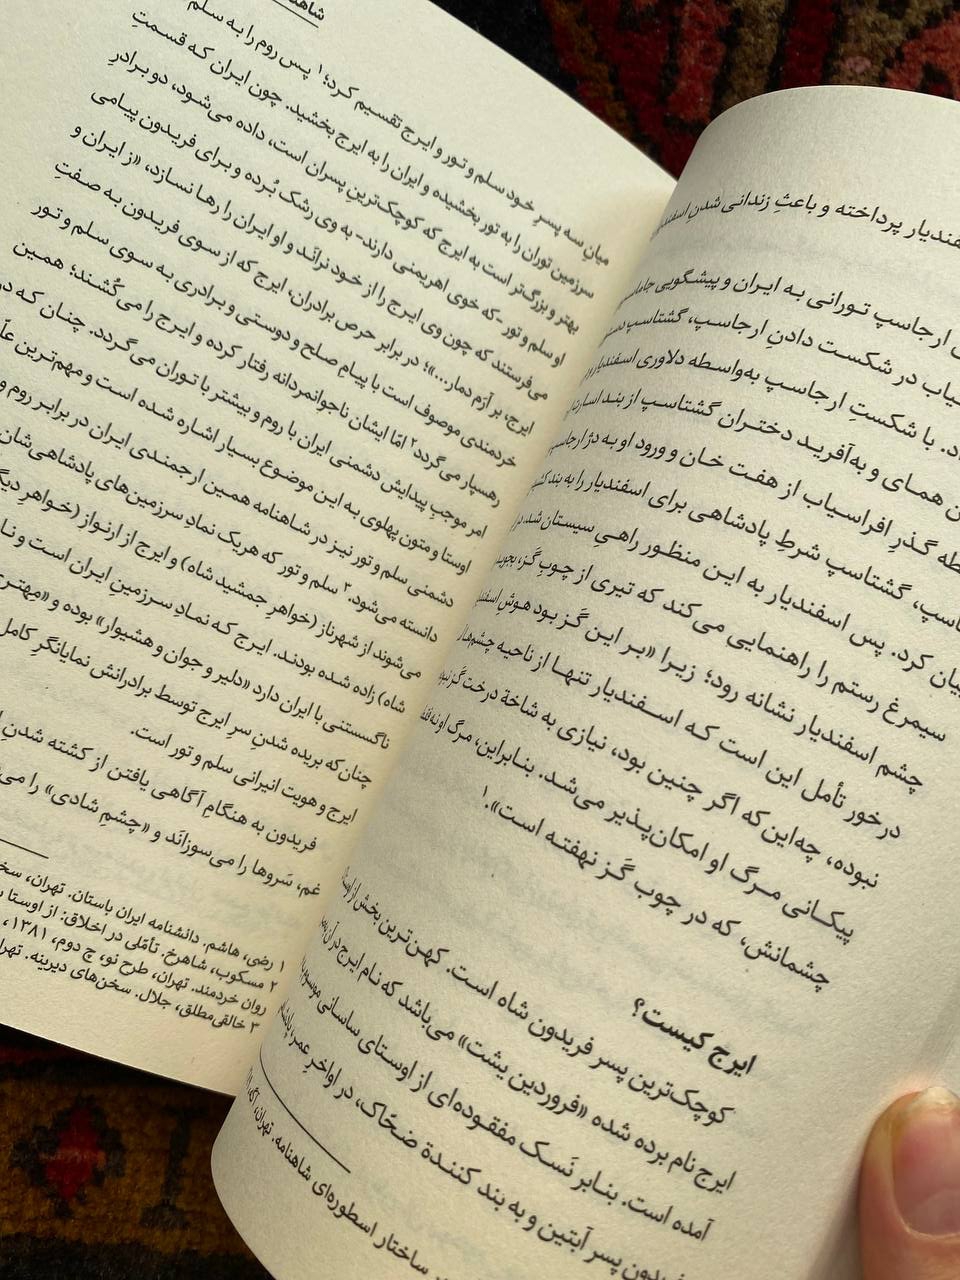 فندیار پرداخته و باعثِ زندانی شدنِ اسفندیار
ارجاسپ تورانی به ایران و پیشگویی جاماسپ
یاب در شکست دادنِ ارجاسپ، گشتاسپ
د. با شکستِ ارجاسپ به‌واسطه دلاوری اسفندیار
ن همای و به‌آفرید دختران گشتاسپ از بند
طه گذرِ افراسیاب از هفت خان و ورود او به دژ ارجاسپ
اسپ، گشتاسپ شرطِ پادشاهی برای اسفندیار را به بند
بیان کرد. پس اسفندیار به این منظور راهیِ سیستان شد.
سیمرغ رستم را راهنمایی می‌کند که تیری از چوبِ گز،
چشم اسفندیار نشانه رود؛ زیرا «بر این گز بود هوشِ
درخور تأمل این است که اسفندیار تنها از ناحیه
نبوده، چه‌این‌که اگر چنین بود، نیازی به شاخهٔ درخت گز
پیکانی مرگ او امکان‌پذیر می‌شد. بنابراین، مرگ او نه
چشمانش، که در چوب گَز نهفته است».۱
ایرج کیست؟
کوچک‌ترین پسر فریدون شاه است. کهن‌ترین بخش از
ایرج نام برده شده «فروردین یشت» می‌باشد که نام ایرج در آن
آمده است. بنابر نَسک مفقوده‌ای از اوستای ساسانی
فریدون پسر آبتین و به بند کنندهٔ ضحّاک، در اواخرِ عمر،
ساختار اسطوره‌ای شاهنامه. تهران،
میانِ سه پسرِ خود سلم و تور و ایرج تقسیم کرد؛۱ پس روم را به سلم
سرزمین توران را به تور بخشیده و ایران را به ایرج بخشید. چون ایران که قسمتِ
بهتر و بزرگ‌تر است به ایرج که کوچک‌ترینِ پسران است، داده می‌شود، دو برادرِ
او سلم و تور -که خوی اهریمنی دارند- به وی رشک بُرده و برای فریدون پیامی
می‌فرستند که چون وی ایرج را از خود نرانَد و او ایران را رها نسازد، «ز ایران و
ایرج، بر آرَم دمار...»؛ در برابر حرص برادران، ایرج که از سوی فریدون به صفتِ
خردمندی موصوف است با پیامِ صلح و دوستی و برادری به سوی سلم و تور
رهسپار می‌گردد۲ امّا ایشان ناجوانمردانه رفتار کرده و ایرج را می‌کُشند؛ همین
امر موجبِ پیدایش دشمنی ایران با روم و بیشتر با توران می‌گردد. چنان که در
اوستا و متون پهلوی به این موضوع بسیار اشاره شده است و مهم‌ترین
دشمنی سلم و تور نیز در شاهنامه همین ارجمندی ایران در برابر روم و
دانسته می‌شود.۳ سلم و تور که هریک نمادِ سرزمین‌های پادشاهی‌شان
می‌شوند از شهرناز (خواهرِ جمشید شاه) و ایرج از ارنواز (خواهرِ
شاه) زاده شده بودند. ایرج که نمادِ سرزمینِ ایران است و
ناگسستنی با ایران دارد «دلیر و جوان و هشیوار» بوده و «مِهتری
چنان‌که بریده شدنِ سرِ ایرج توسط برادرانش نمایانگرِ کاملِ
ایرج و هویت انیرانی سلم و تور است.
فریدون به هنگامِ آگاهی یافتن از کشته شدنِ
غم، سَروها را می‌سوزاند و «چشمِ شادی» را
۱ رضی، هاشم. دانشنامه ایران باستان. تهران،
۲ مسکوب، شاهرخ. تأمّلی در اخلاق: از اوستا
روان خردمند. تهران، طرح نو، چ دوم، ۱۳۸۱،
۳ خالقی‌مطلق، جلال. سخن‌های دیرینه.